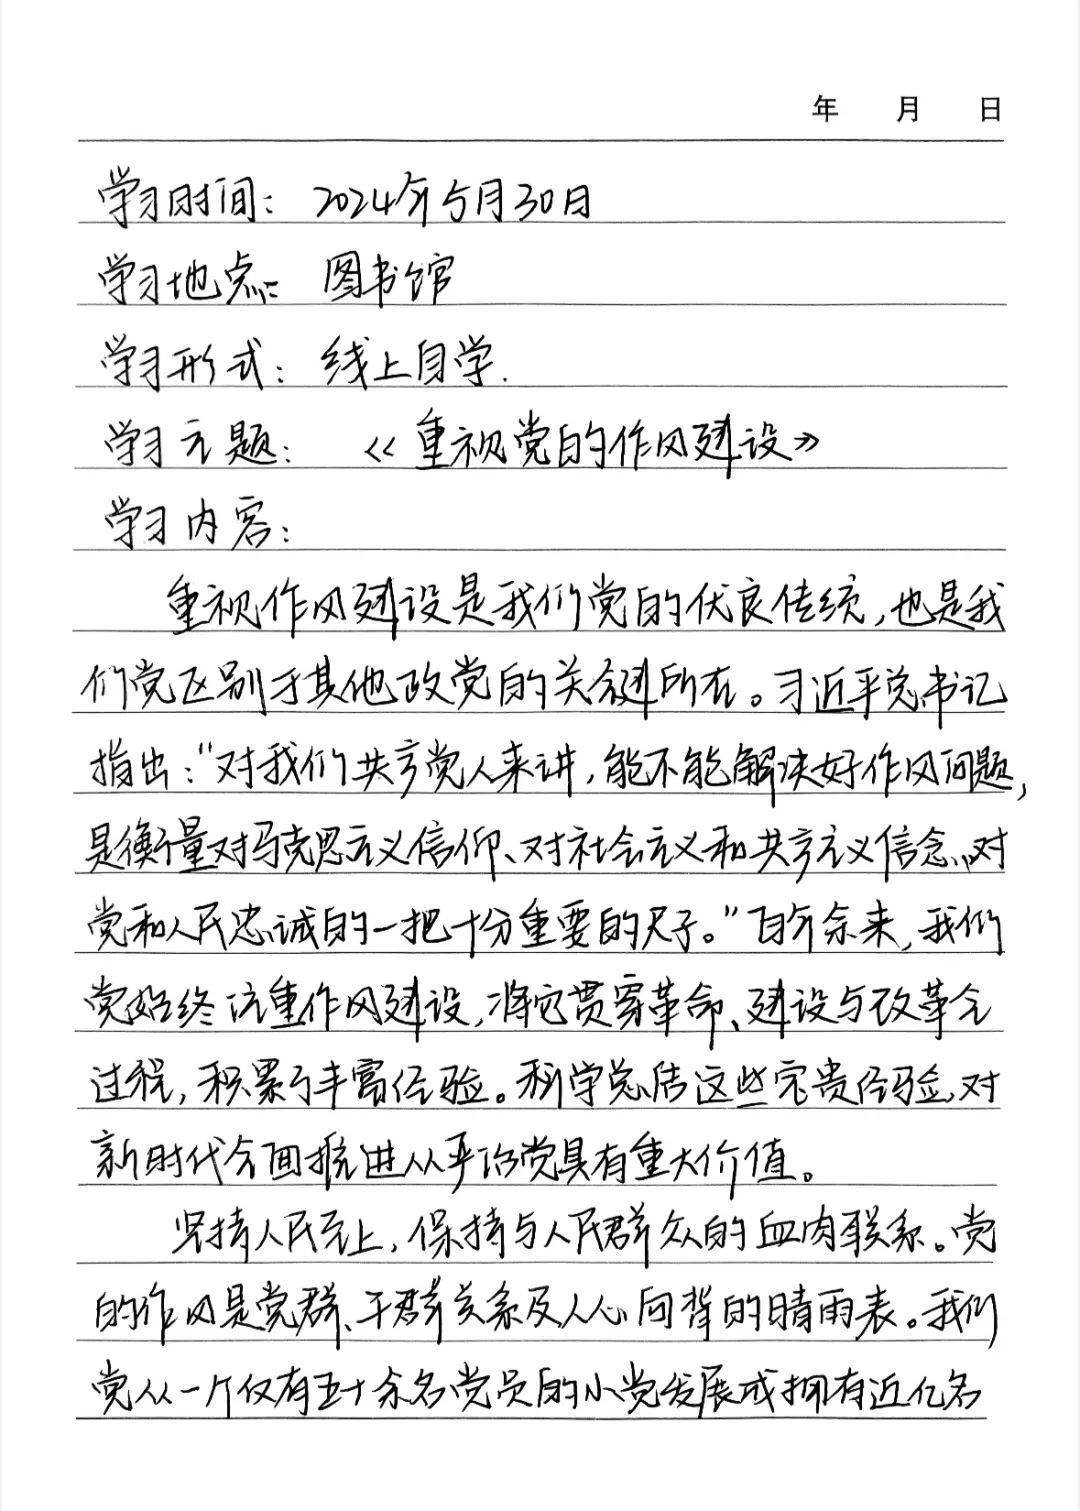 年 月 日
学习时间: 2024年5月30日
学习地点: 图书馆
学习形式: 线上自学.
学习主题: 《重视党的作风建设》
学习内容:
重视作风建设是我们党的优良传统,也是我
们党区别于其他政党的关键所在。习近平总书记
指出:“对我们共产党人来讲,能不能解决好作风问题,
是衡量对马克思主义信仰、对社会主义和共产主义信念、对
党和人民忠诚的一把十分重要的尺子。”百年余来,我们
党始终注重作风建设,将它贯穿革命、建设与改革全
过程,积累了丰富经验。科学总结这些宝贵经验,对
新时代全面推进从严治党具有重大价值。
坚持人民至上,保持与人民群众的血肉联系。党
的作风是党群、干群关系及人心向背的晴雨表。我们
党从一个仅有五十余名党员的小党发展成拥有近亿名